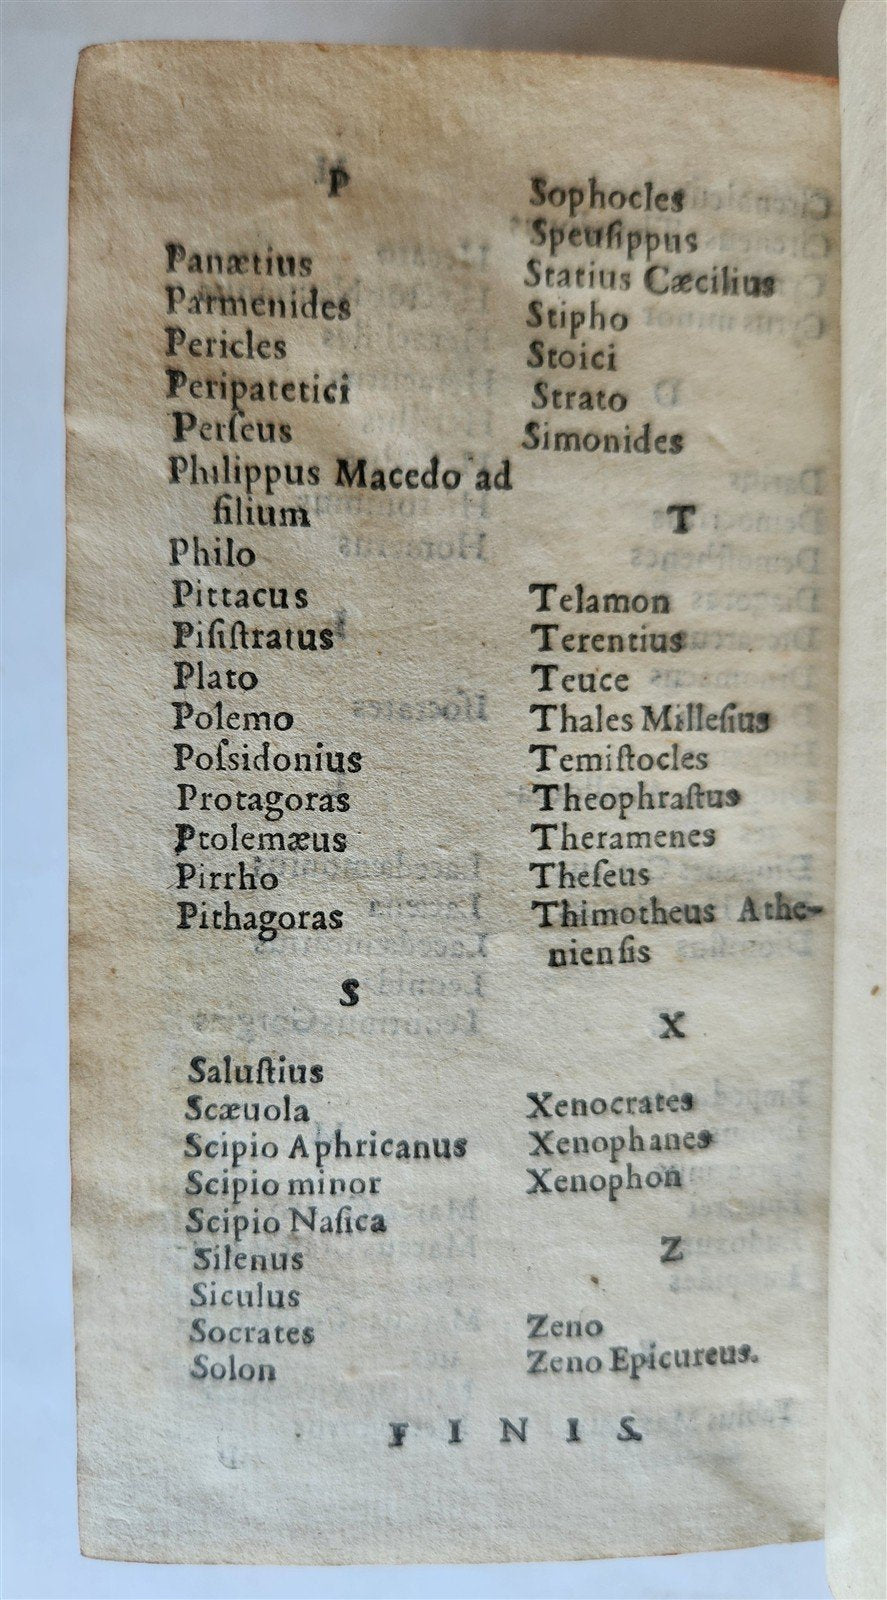 P
Panætius
Parmenides
Pericles
Peripatetici
Perſeus
Philippus Macedo ad
filium
Philo
Pittacus
Piſiſtratus
Plato
Polemo
Poſsidonius
Protagoras
Ptolemæus
Pirrho
Pithagoras
S
Saluſtius
Scæuola
Scipio Aphricanus
Scipio minor
Scipio Naſica
Silenus
Siculus
Socrates
Solon
Sophocles
Speuſippus
Statius Cæcilius
Stipho
Stoici
Strato
Simonides
T
Telamon
Terentius
Teuce
Thales Milleſius
Temiſtocles
Theophraſtus
Theramenes
Theſeus
Thimotheus Athe-
nienſis
X
Xenocrates
Xenophanes
Xenophon
Z
Zeno
Zeno Epicureus.
FINIS.